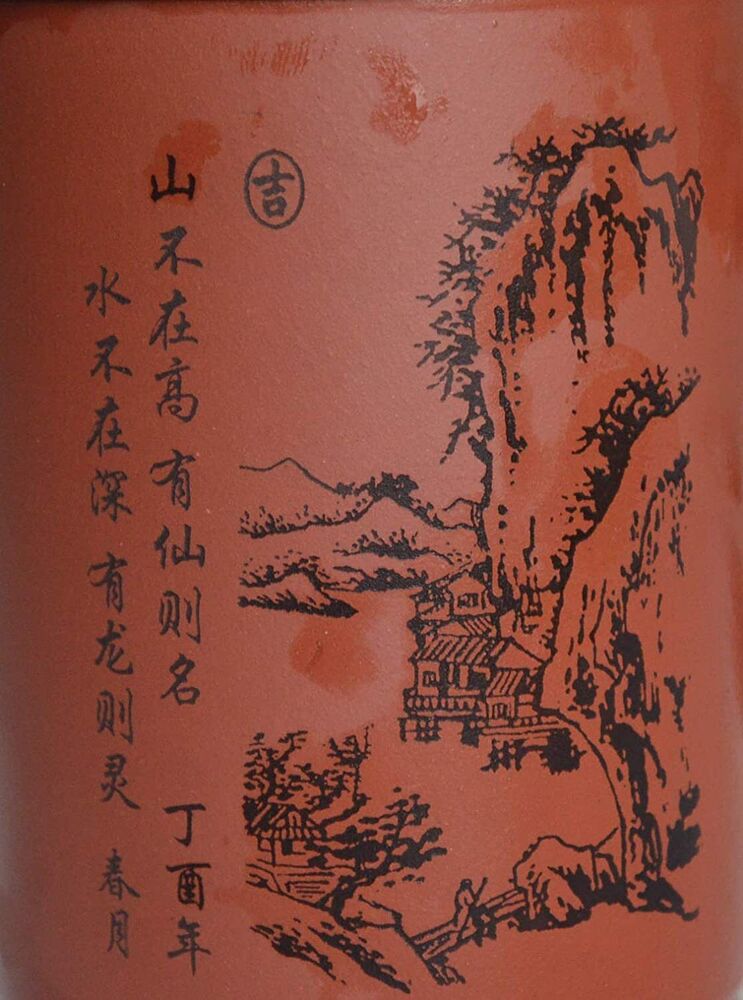 吉
山不在高有仙则名 丁酉年
水不在深有龙则灵 春月